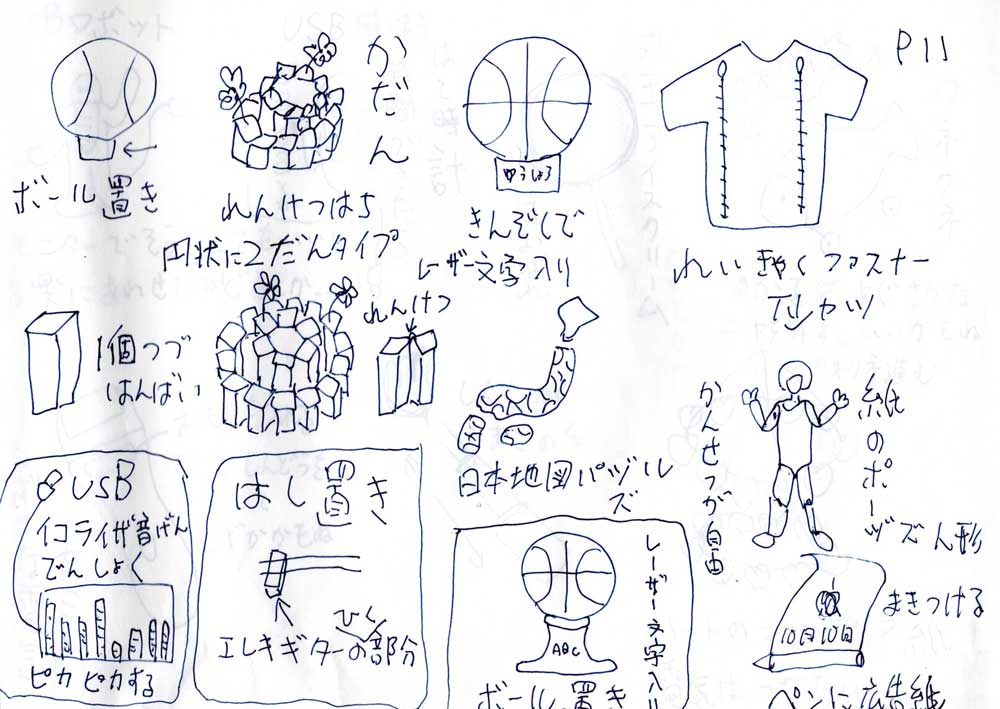 P11
ボール置き
かだん
れんけつはち
円状に2だんタイプ
ゆうしょう
きんぞくで
レーザー文字入り
れいきゃくファスナー
Tシャツ
1個づつ
はんばい
れんけつ
日本地図パズル
ズ
紙のポーズ人形
かんせつが自由
USB
イコライザ音げん
でんしょく
ピカピカする
はし置き
エレキギターのひく部分
レーザー文字入り
ABC
ボール置き
まきつける
10日10日
ペンに広告紙